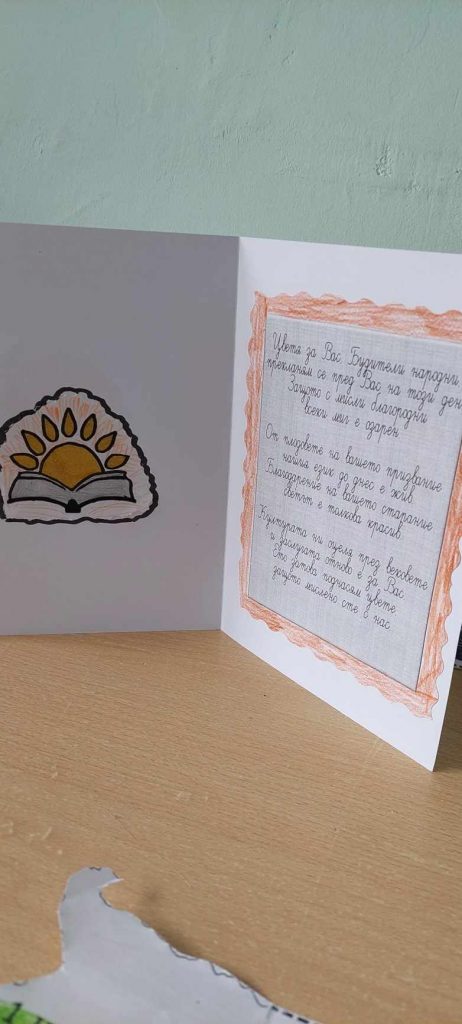 Цветя за Вас Будители народни,
прекланям се пред Вас на този ден
Защото с мисли благородни
всеки миг е озарен
От плодовете на вашето призвание
нашия език до днес е жив.
Благодарение на вашето старание
светът е толкова красив.
Културата ни оцеля пред вековете
и заслугата отново е за Вас
Ето затова поднасям цвете
защото мислено сте с нас